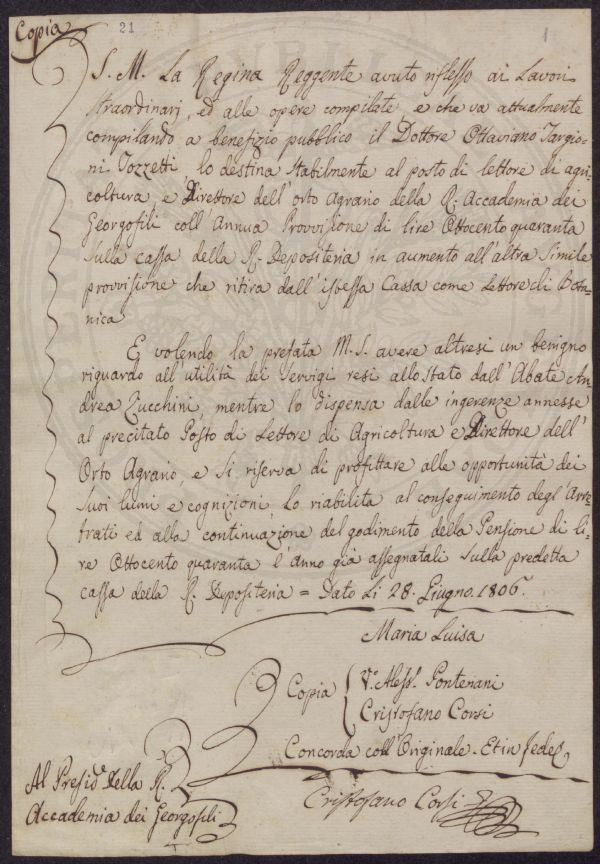 Copia
21
1
S. M. La Regina Reggente avuto riflesso ai Lavori
straordinarj, ed alle opere compilate, e che va attualmente
compilando a benefizio pubblico il Dottore Ottaviano Targio-
ni Tozzetti, lo destina stabilmente al posto di lettore di agri-
coltura, e Direttore dell'orto Agrario della R. Accademia dei
Georgofili coll'Annua Provvisione di lire Ottocento quaranta
sulla cassa della R. Depositeria in aumento all'altra simile
provvisione che ritira dall'istessa Cassa come Lettore di Bota-
nica
E volendo la prefata M. S. avere altresi un benigno
riguardo all'utilità dei servigi resi allo stato dall'Abate An-
drea Zucchini, mentre lo dispensa dalle ingerenze annesse
al precitato Posto di Lettore di Agricoltura e Direttore dell'
Orto Agrario, e si riserva di profittare alle opportunità dei
suoi lumi e cognizioni, Lo riabilita al conseguimento degl'Arre-
trati ed alla continuazione del godimento della Pensione di li-
re Ottocento quaranta l'anno già assegnatali sulla predetta
cassa della R. Depositeria = Dato Li 28. Giugno. 1806.
Maria Luisa
Copia
V.° Aless.° Pontenani
Cristofano Corsi
Concorda coll'Originale. Et in fede
Cristofano Corsi
Al Presid.e Della R.
Accademia dei Georgofili